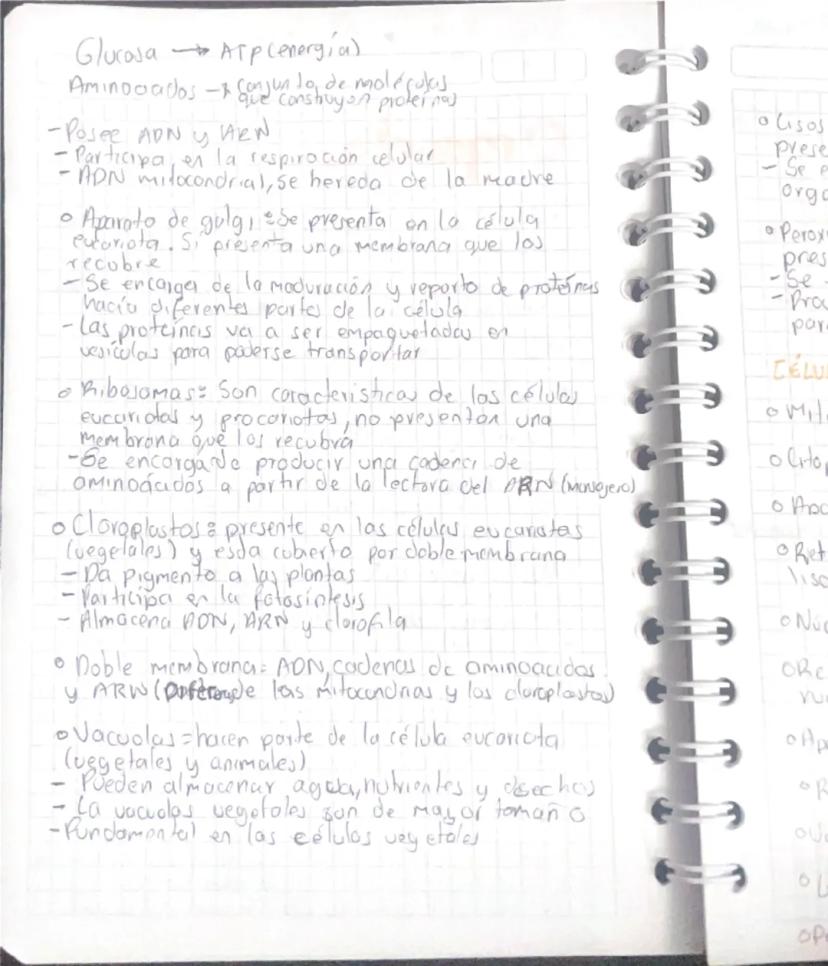 Glucosa → ATP (energía)
Aminoacidos → conjunto de moléculas
que construyen proteínas
- Posee ADN y ARN
- Participa en la respiración celular
- ADN mitocondrial, se hereda de la madre
o Aparato de golgi = Se presenta en la célula
eucariota. Si presenta una membrana que los
recubre
- Se encarga de la maduración y reparto de proteínas
hacia diferentes partes de la célula
- Las proteínas va a ser empaquetadas en
vesículas para poderse transportar
o Ribosomas = Son caracteristicas de las células
eucariotas y procariotas, no presentan una
membrana que los recubra
- Se encarga de producir una cadena de
aminoácidos a partir de la lectora del ARN (mensajero)
o Cloroplastos = presente en las células eucariotas
(vegetales) y esda cuberto por doble membrana
- Da pigmento a las plantas
- Participa en la fotosíntesis
- Almacena ADN, ARN y clorofila
o Doble membrana = ADN, cadenas de aminoacidos
y ARN ( de las mitocondrias y los cloroplastos)
o Vacuolas = hacen parte de la célula eucariota
(vegetales y animales)
- Pueden almacenar agua, nutrientes y desechos
- La vacuolas vegetales son de mayor tamaño
- Fundamental en las células vegetales
o Lisos
prese
- Se e
orga
o Perox
pres
- Se
- Pro
par
CÉLU
o Mit
o Cito
o Apa
o Ret
liso
o Núc
o Re
ru
o Ap
o R
o L